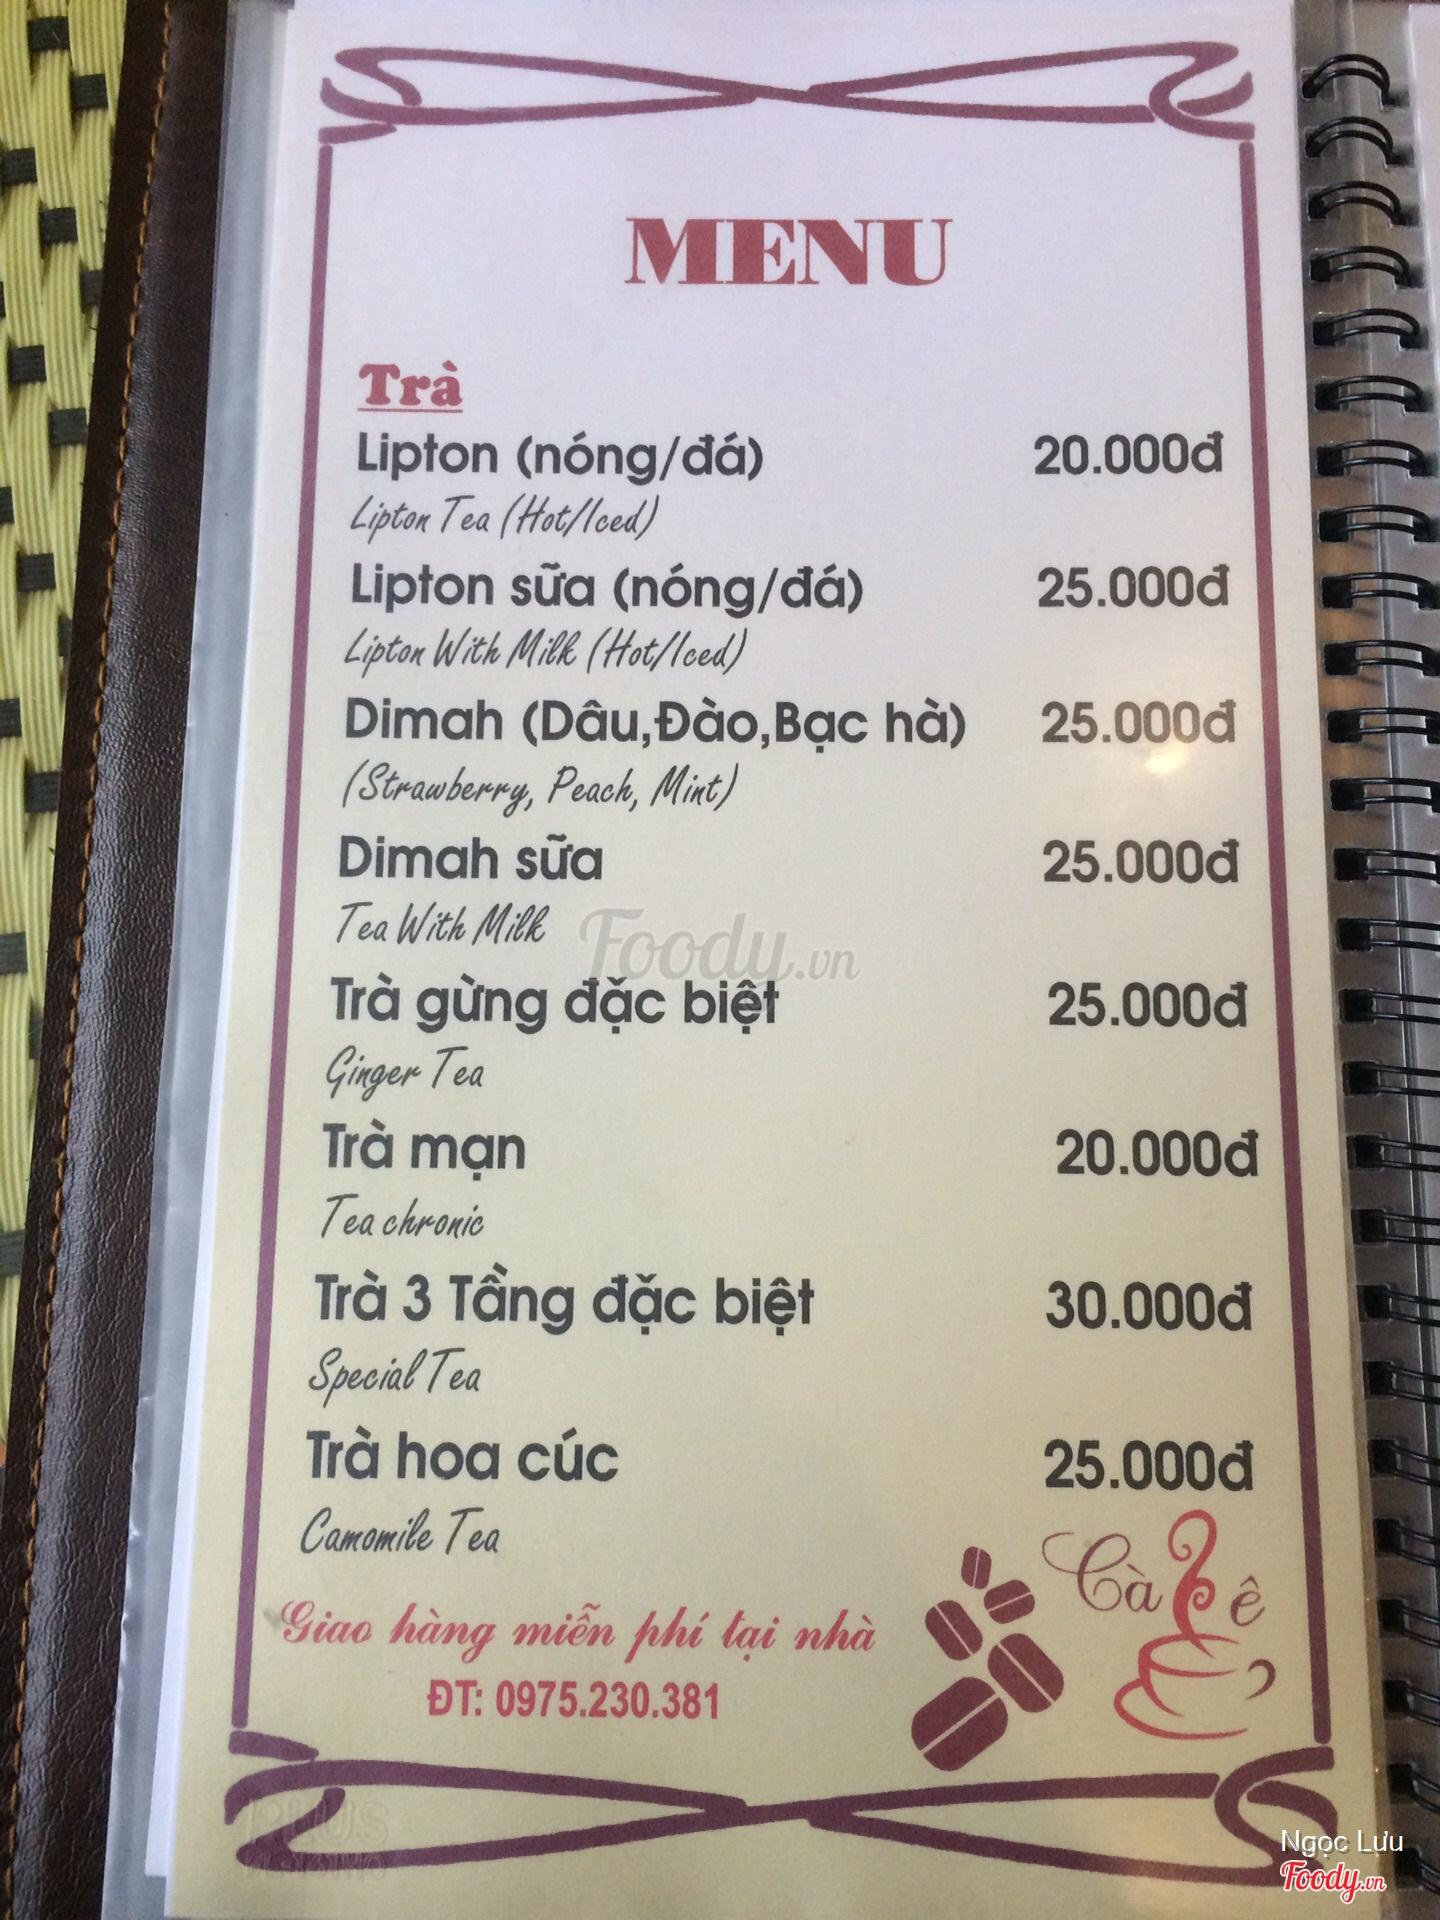 MENU
Trà
Lipton (nóng/đá) 20.000đ
Lipton Tea (Hot/Iced)
Lipton sữa (nóng/đá) 25.000đ
Lipton With Milk (Hot/Iced)
Dimah (Dâu,Đào,Bạc hà) 25.000đ
(Strawberry, Peach, Mint)
Dimah sữa 25.000đ
Tea With Milk
Foody.vn
Trà gừng đặc biệt 25.000đ
Ginger Tea
Trà mạn 20.000đ
Tea chronic
Trà 3 Tầng đặc biệt 30.000đ
Special Tea
Trà hoa cúc 25.000đ
Camomile Tea
Cà fê
Giao hàng miễn phí tại nhà
ĐT: 0975.230.381
PLUS
Ngọc Lựu
Foody.vn